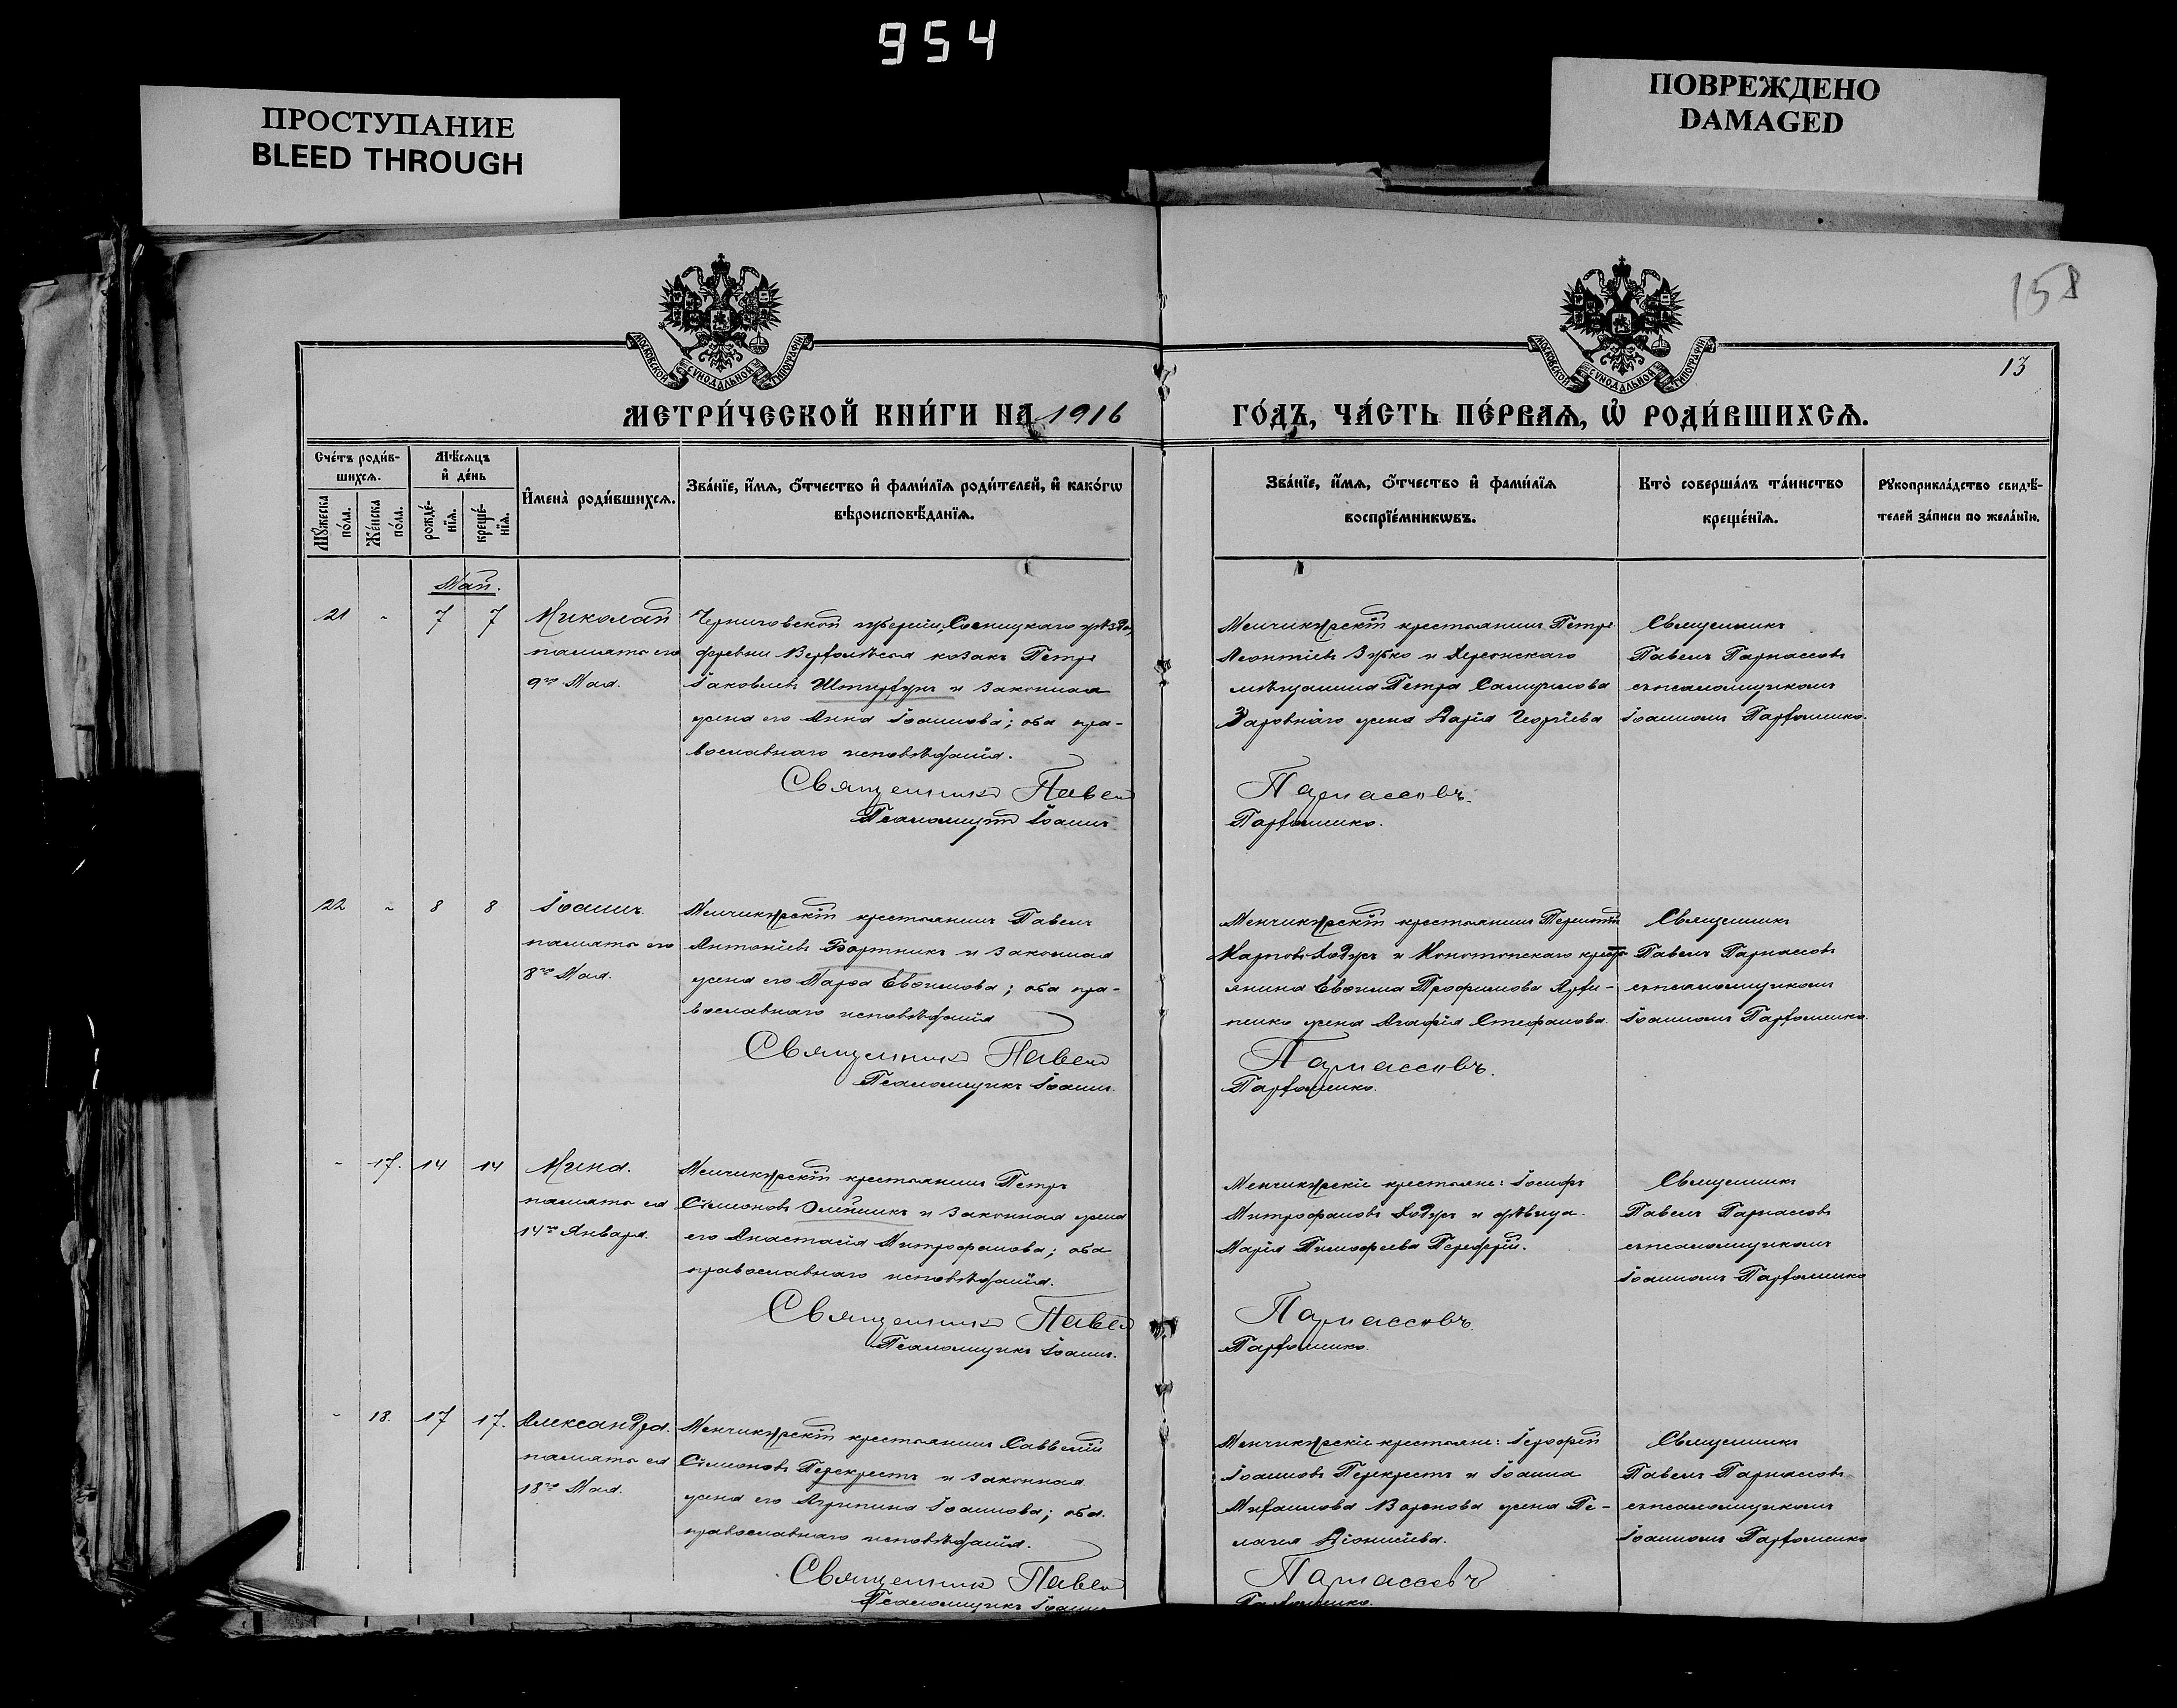 954
ПРОСТУПАНИЕ
BLEED THROUGH
ПОВРЕЖДЕНО
DAMAGED
158
МОСКОВСКОЙ СѴНОДАЛЬНОЙ ТИПОГРАФІИ
МОСКОВСКОЙ СѴНОДАЛЬНОЙ ТИПОГРАФІИ
13
МЕТРИ́ЧЕСКОЙ КНИ́ГИ НА 1916
ГО́ДЪ, ЧА́СТЬ ПЕ́РВАѦ, Ѡ҆ РОДИ́ВШИХСѦ.
Сче́тъ роди́в-
шихсѧ.
Мꙋ́жеска по́ла.
Же́нска по́ла.
Мѣ́сѧцъ
и҆ де́нь
рожде́-
нїѧ.
креще́-
нїѧ.
И҆мена̀ роди́вшихсѧ.
Зва́нїе, и҆́мѧ, ѻ҆́тчество и҆ фами́лїѧ роди́телей, и҆ како́гѡ
вѣроисповѣ́данїѧ.
Зва́нїе, и҆́мѧ, ѻ҆́тчество и҆ фами́лїѧ
воспрїе́мникѡвъ.
Кто̀ соверша́лъ та́инство
креще́нїѧ.
Рꙋкоприкла́дство свидѣ́-
телей за́писи по жела́нїю.
Май.
21 - 7 7
Николай
память его
9го Мая.
Черниговской губерніи, Сосницкаго уѣзда,
деревни козакъ Петръ
Іаковлевъ и законная
жена его Анна Іоаннова; оба пра-
вославнаго исповѣданія.
Священникъ Павелъ
Псаломщикъ Іоаннъ
Менчикурскій крестьянинъ Петръ
Леонтіевъ Зубко и Херсонскаго
мѣщанина Петра
жена Дарія Георгіева
Парнассовъ.
Парфоменко.
Священникъ
Павелъ Парнассовъ
съ псаломщикомъ
Іоанномъ Парфоменко.
22 - 8 8
Іоаннъ.
память его
8го Мая.
Менчикурскій крестьянинъ Павелъ
Антоніевъ Бортникъ и законная
жена его Марѳа Евѳимова; оба пра-
вославнаго исповѣданія
Священникъ Павелъ
Псаломщикъ Іоаннъ.
Менчикурскій крестьянинъ Терентій
Карповъ и Конотопскаго
янина Евѳима Трофимова
жена Агафія Стефанова.
Парнассовъ.
Парфоменко.
Священникъ
Павелъ Парнассовъ
съ псаломщикомъ
Іоанномъ Парфоменко.
- 17. 14 14
Нина.
память ея
14го Января.
Менчикурскій крестьянинъ Петръ
Сѵмеоновъ Олейникъ и законная жена
его Анастасія Митрофанова; оба
православнаго исповѣданія.
Священникъ Павелъ
Псаломщикъ Іоаннъ.
Менчикурскіе крестьяне: Іосифъ
Митрофановъ и дѣвица
Марія Тимофеева
Парнассовъ.
Парфоменко.
Священникъ
Павелъ Парнассовъ
съ псаломщикомъ
Іоанномъ Парфоменко
- 18. 17 17.
Александра.
память ея
18го Мая.
Менчикурскій крестьянинъ Савватій
Сѵмеоновъ Перекрестъ и законная
жена его Агрипина Іоаннова; оба
православнаго исповѣданія.
Священникъ Павелъ
Псаломщикъ Іоаннъ
Менчикурскіе крестьяне: Іерофей
Іоанновъ Перекрестъ и Іоанна
Михаилова Воронова жена Пе-
лагія Діонисіева.
Парнассовъ
Парфоменко.
Священникъ
Павелъ Парнассовъ
съ псаломщикомъ
Іоанномъ Парфоменко